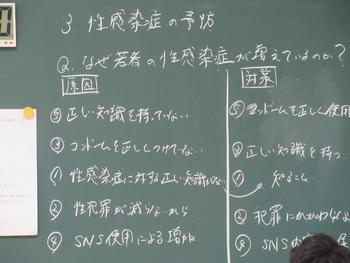 3. 性感染症の予防
Q. なぜ若者の性感染症が増えているのか?
原因
対策
⑤ 正しい知識を持っていない
⑤ コンドームを正しく使用
③ コンドームを正しくつけてない
③ 正しい知識を持つ
① 性感染症に対する正しい知識がない
① 知ること
② 性犯罪が減らないから
② 犯罪にかかわらない
④ SNS使用による増加
④ SNS